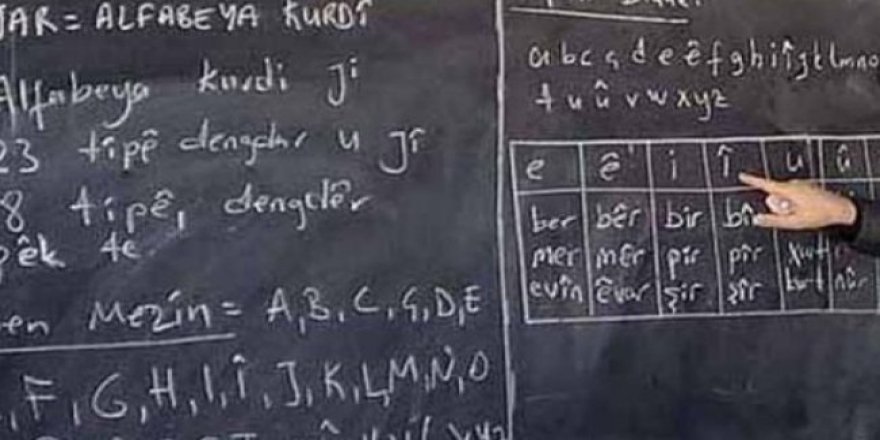 JAR= ALFABEYA KURDÎ
Alfabeya kurdi ji
23 tîpê dengdar u jî
8 tipê, dengdêr
pêk te
en Mezin= A,B,C,Ç,D,E
,F,G,H,I,Î,J,K,L,M,N,O
a b c ç d e ê f g h i î j k l m n o
t u û v w x y z
e ê i î u û
ber bêr bir bîr
mer mêr pir pîr
evîn êvar şir şîr kurt nûr